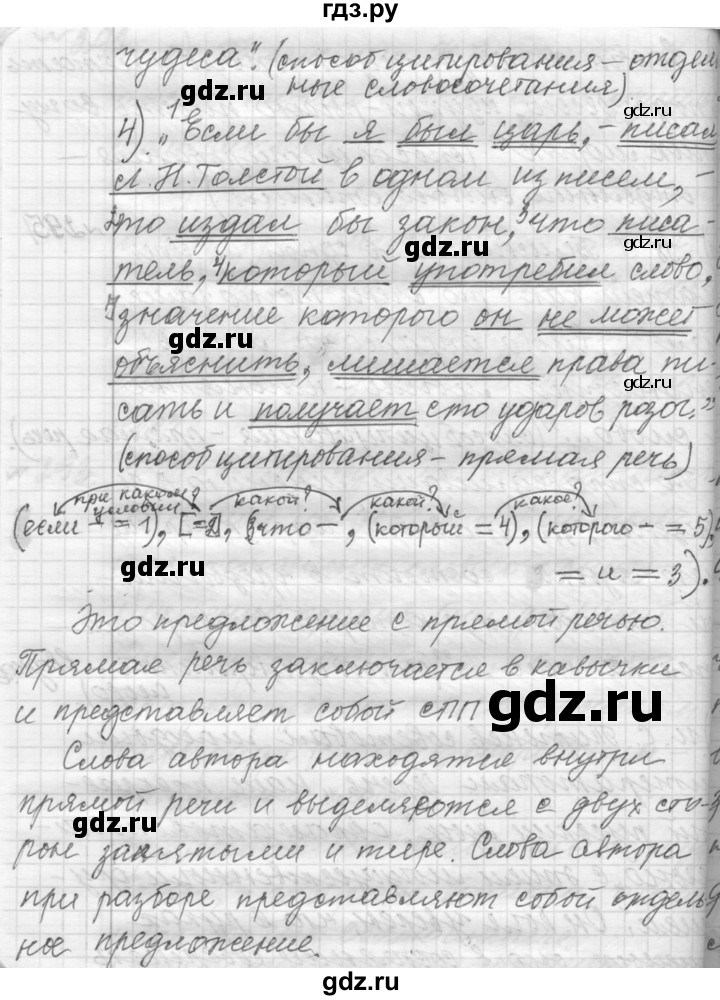 гдз.ру
чудеса". (способ цитирования – отдель
ные словосочетания)
gdz.ru
gdz.ru
4). „¹Если бы я был царь, – писал
Л.Н.Толстой в одном из писем, –
²то издал бы закон, ³что писа-
gdz.ru
тель, ⁴который употребил слово,
значение которого он не может
gdz.ru
объяснить, лишается права пи-
gdz.ru
сать и получает сто ударов розог."
(способ цитирования – прямая речь)
при каком условии какой? какой? какое?
(если – = 1), [= 2], (что –, (который = 4), (которого – = 5),
gdz.ru
= и = 3).
Это предложение с прямой речью.
Прямая речь заключается в кавычки
и представляет собой СПП
gdz.ru
Слова автора находятся внутри
прямой речи и выделяются с двух сто-
gdz.ru
рон запятыми и тире. Слова автора
при разборе представляют собой отдель
ное предложение.
gdz.ru